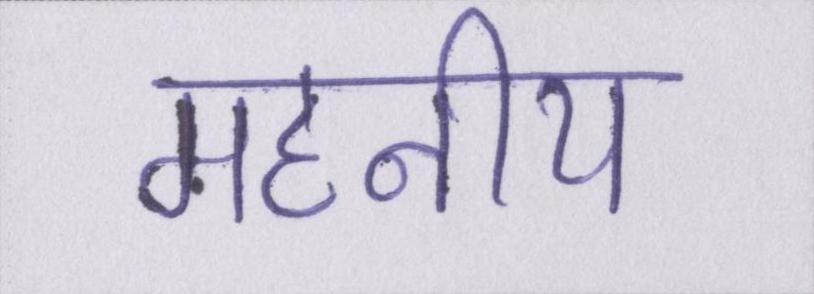 महनीय